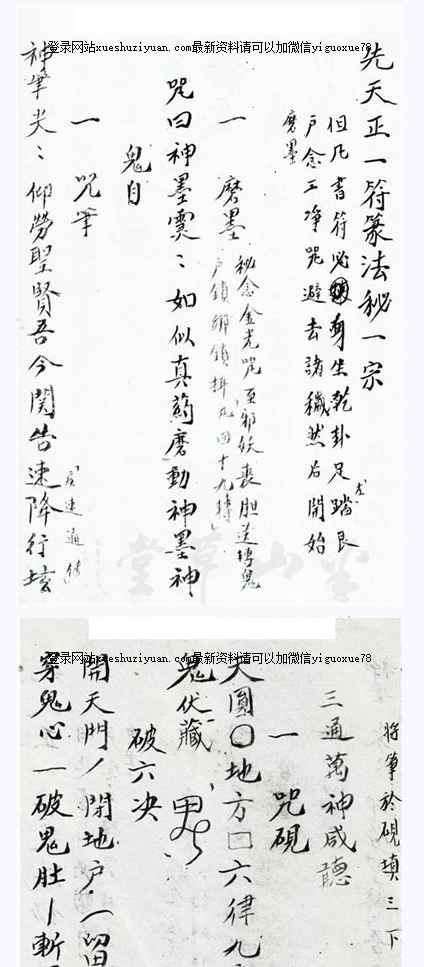 登录网站xueshuziyuan.com最新资料请可以加微信yiguoxue78
先天正一符篆法秘一宗
但凡書符必身坐乾卦足踏艮
左
戶念三净咒避去諸穢然后開始
磨墨
一 磨墨
秘念金光咒至邪妖喪胆送
鬼
四十九轉
咒曰神墨靈：如似真葯磨動神墨神
鬼自
一 咒筆
神筆尖：仰勞聖賢吾今関告速降行坛
金山華堂
登录网站xueshuziyuan.com最新资料请可以加微信yiguoxue78
將筆於硯填三下
三通萬神咸聽
一 咒硯
天圓〇地方口六律九
鬼伏藏
破六决
開天門ノ閉地戶一留
穿鬼心一破鬼肚丨斬